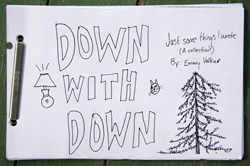 DOWN
WITH
DOWN
Just some things I wrote
(A collection!)
By: Emmy